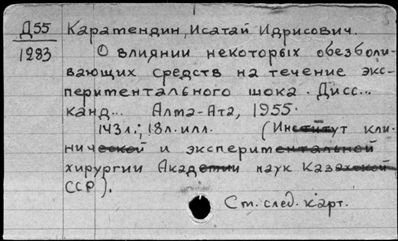 Д55 Каратендин, Исатай Идрисович.
1283 О влиянии некоторых обезболи-
вающих средств на течение экс-
периментального шока. Дисс...
канд... Алма-Ата, 1955.
143л.; 18л. илл. (Институт кли-
нической и экспериментальной
хирургии Академии наук Казахской
ССР).
См. след. карт.